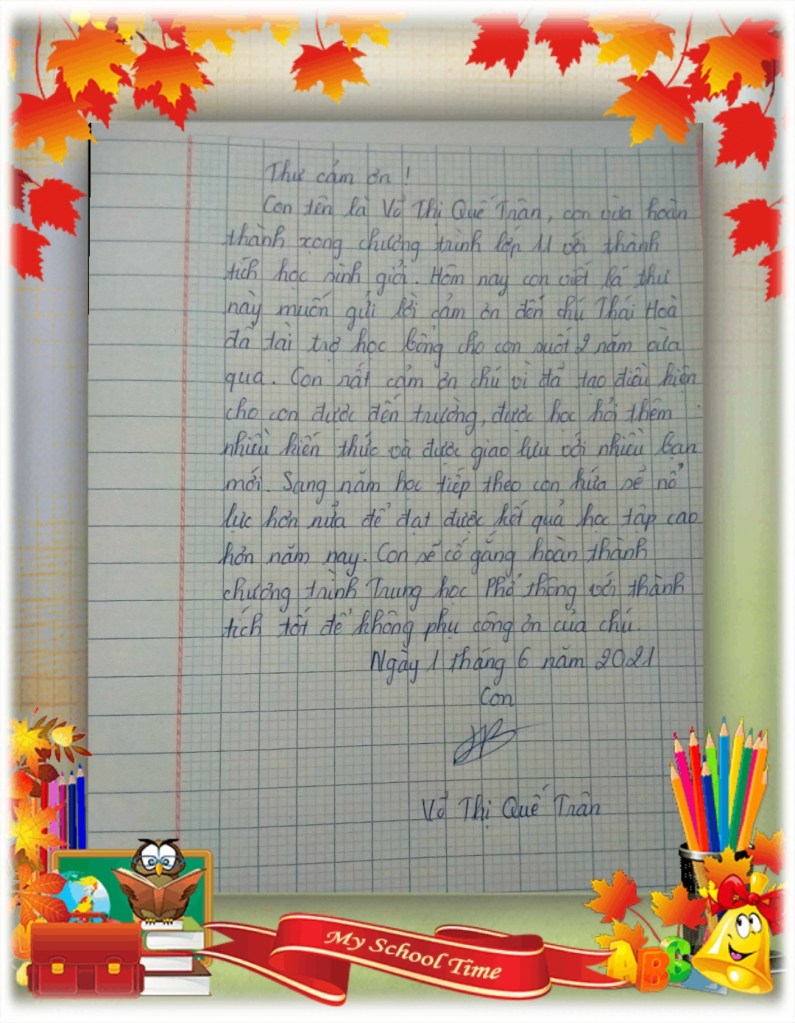 Thư cám ơn !
Con tên là Võ Thị Quế Trân, con vừa hoàn
thành xong chương trình lớp 11 với thành
tích học sinh giỏi. Hôm nay con viết lá thư
này muốn gửi lời cảm ơn đến chú Thái Hoà
đã tài trợ học bổng cho con suốt 2 năm vừa
qua. Con rất cảm ơn chú vì đã tạo điều kiện
cho con được đến trường, được học hỏi thêm
nhiều kiến thức và được giao lưu với nhiều bạn
mới. Sang năm học tiếp theo con hứa sẽ nổ
lực hơn nửa để đạt được kết quả học tập cao
hơn năm nay. Con sẽ cố gắng hoàn thành
chương trình Trung học Phổ thông với thành
tích tốt để không phụ công ơn của chú.
Ngày 1 tháng 6 năm 2021
Con
Võ Thị Quế Trân
My School Time
ABC